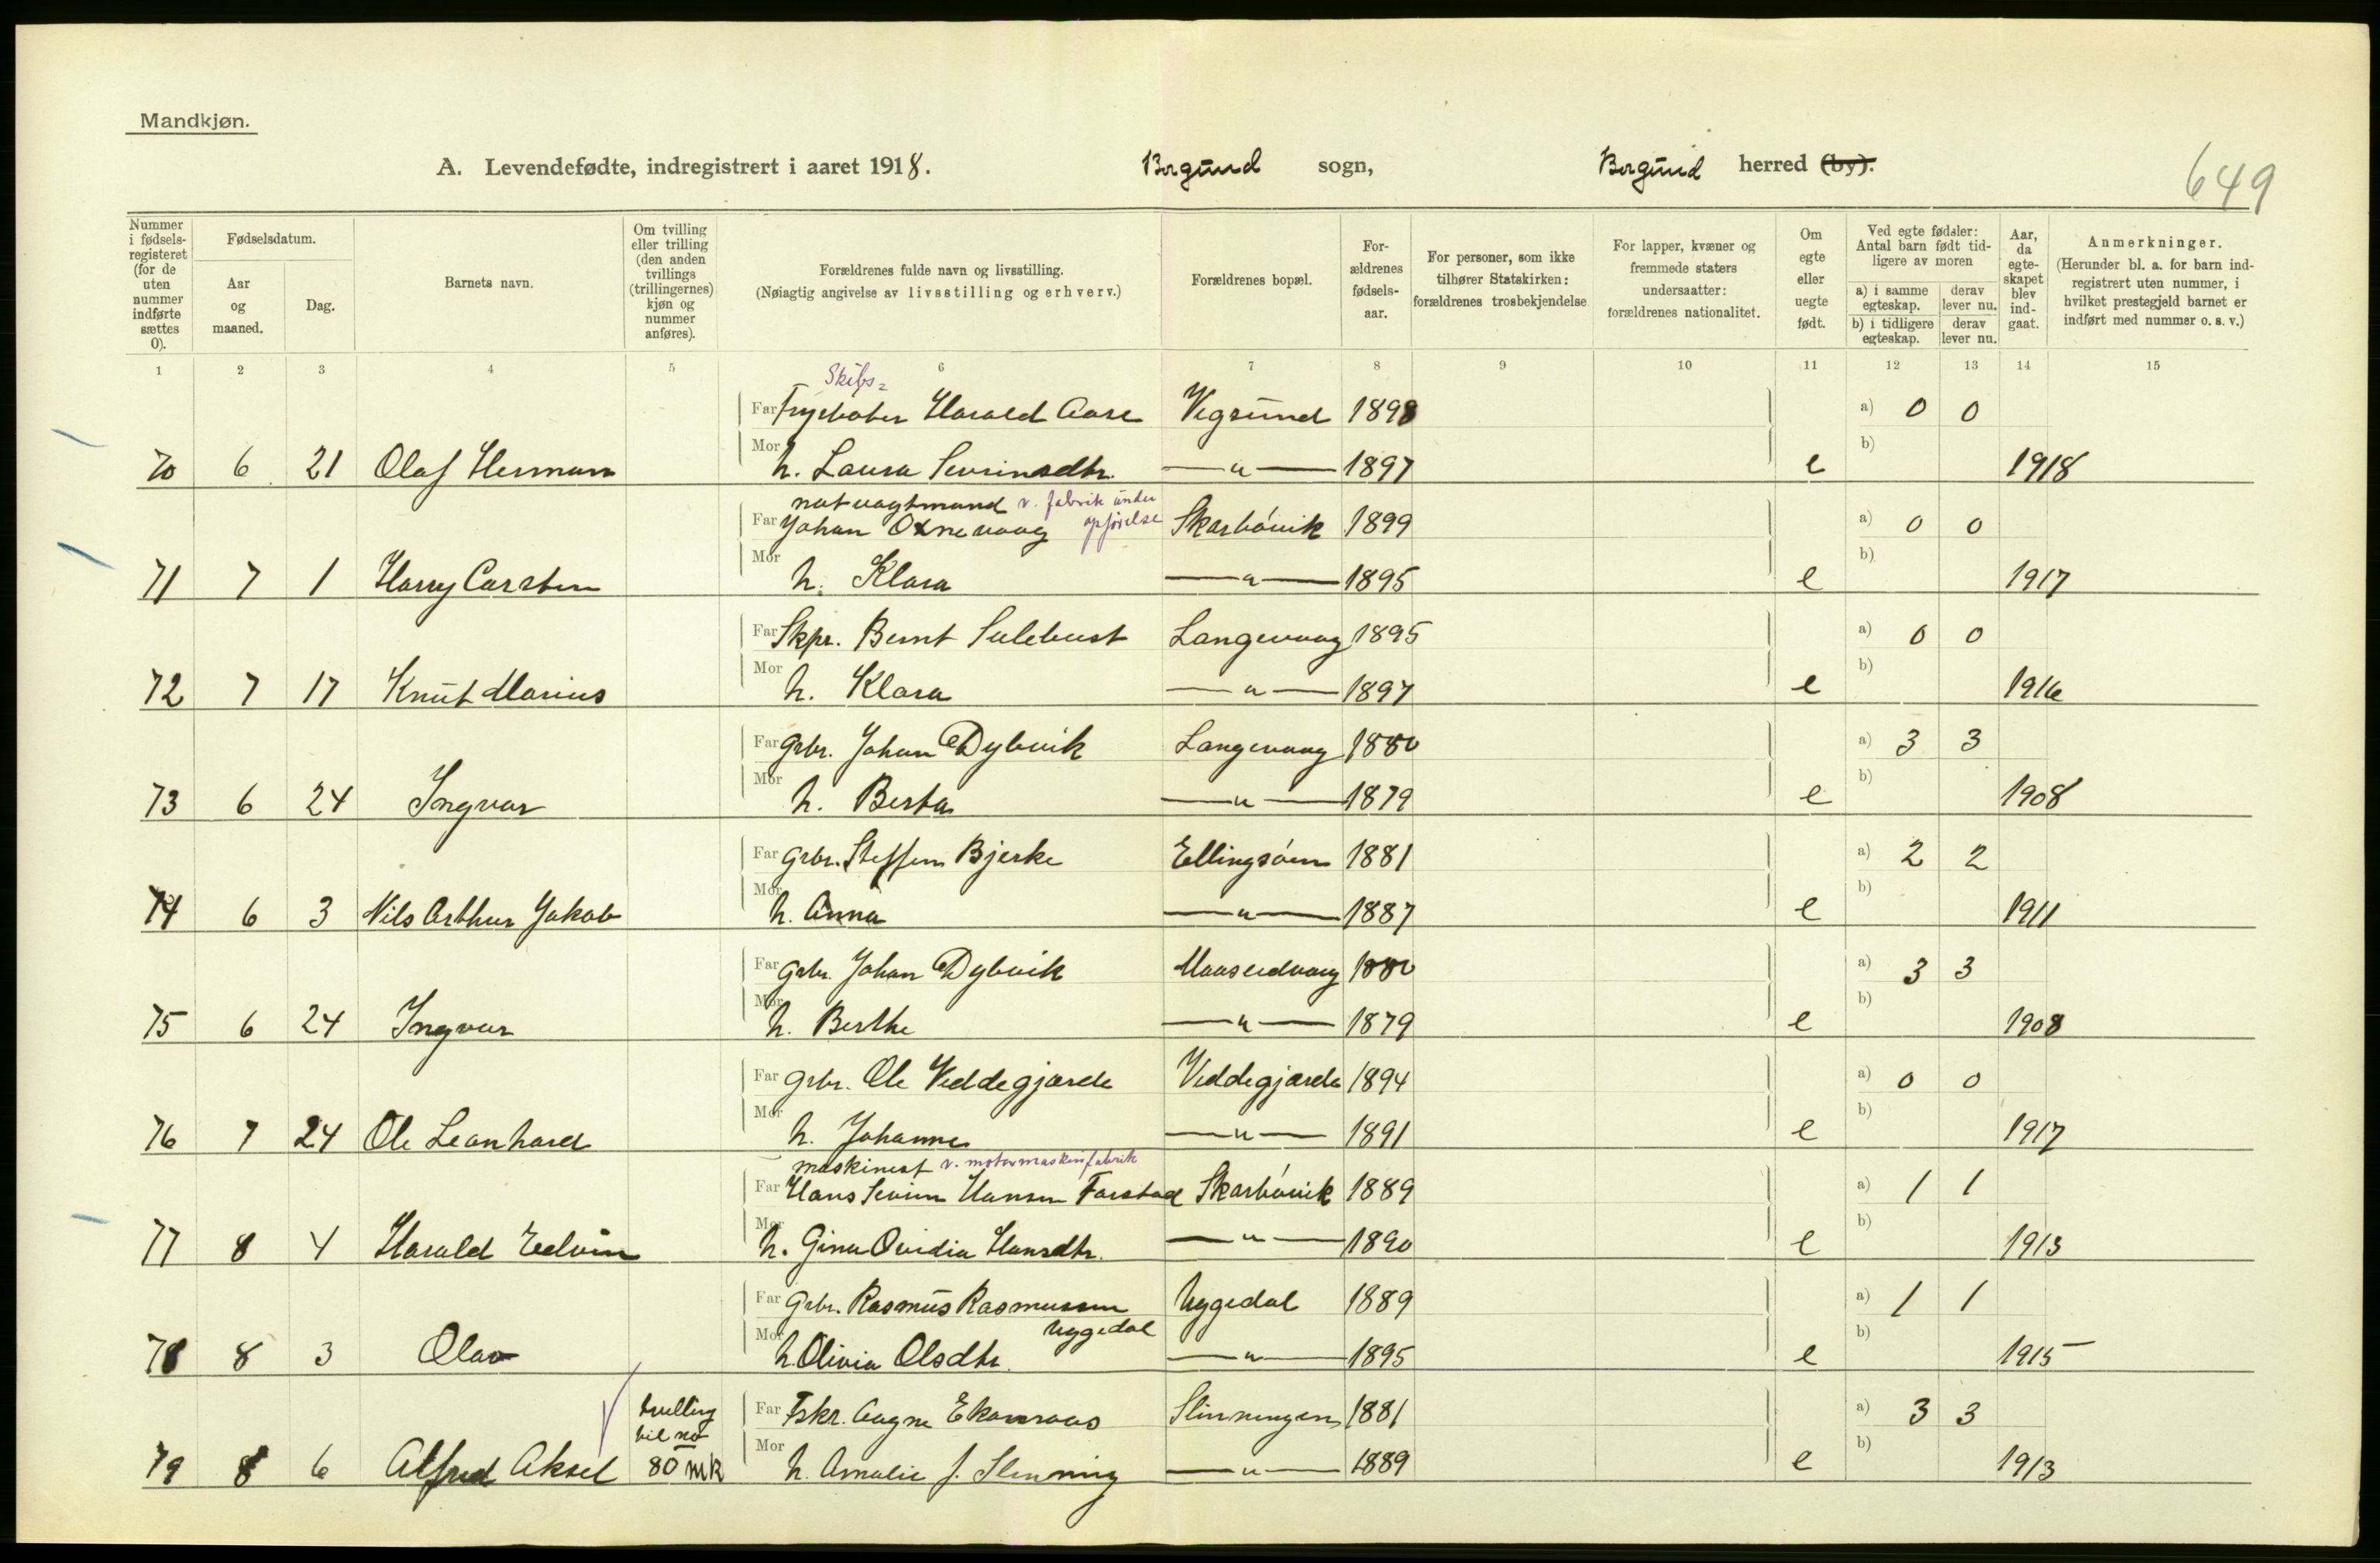 Mandkjøn.
A. Levendefødte, indregistrert i aaret 1918. Borgund sogn, Borgund herred (by).
649
Nummer i fødsels-registeret (for de uten nummer indførte sættes 0).
Fødselsdatum.
Aar og maaned.
Dag.
Barnets navn.
Om tvilling eller trilling (den anden tvillings (trillingernes) kjøn og nummer anføres).
Forældrenes fulde navn og livsstilling.
(Nøiagtig angivelse av livsstilling og erhverv.)
Forældrenes bopæl.
For-ældrenes fødsels-aar.
For personer, som ikke tilhører Statskirken: forældrenes trosbekjendelse
For lapper, kvæner og fremmede staters undersaatter: forældrenes nationalitet.
Om egte eller uegte født.
Ved egte fødsler: Antal barn født tid-ligere av moren
a) i samme egteskap. derav lever nu.
b) i tidligere egteskap. derav lever nu.
Aar, da egte-skapet blev ind-gaat.
Anmerkninger.
(Herunder bl. a. for barn ind-registrert uten nummer, i hvilket prestegjeld barnet er indført med nummer o. s. v.)
1 2 3 4 5 6 7 8 9 10 11 12 13 14 15
Skibs-
Far Fyrbøter Harald Aase Vegsund 1898 a) 0 0
70 6 21 Olaf Herman Mor h. Laura Sevrinsdtr. —"— 1897 e b) 1918
natvagtmand v. fabrik under
Far Johan Oxnevaag opførelse Skarbövik 1899 a) 0 0
71 7 1 Harry Carsten Mor h. Klara —"— 1895 e b) 1917
Far Skpr. Bernt Sulebust Langevaag 1895 a) 0 0
72 7 17 Knut Marius Mor h. Klara —"— 1897 e b) 1916
Far Grbr. Johan Dybvik Langevaag 1880 a) 3 3
73 6 24 Ingvar Mor h. Berta —"— 1879 e b) 1908
Far Grbr. Steffen Bjerke Ellingsöen 1881 a) 2 2
74 6 3 Nils Arthur Jakob Mor h. Anna —"— 1887 e b) 1911
Far Grbr. Johan Dybvik 1880 a) 3 3
75 6 24 Ingvar Mor h. Berthe —"— 1879 e b) 1908
Far Grbr. Ole Veddegjærde Veddegjærde 1894 a) 0 0
76 7 24 Ole Leonhard Mor h. Johanne —"— 1891 e b) 1917
maskinist v. motormaskinfabrik
Far Hans Sevrin Hansen Farstad Skarbövik 1889 a) 1 1
77 8 4 Harald Edvin Mor h. Gina Ovidia Hansdtr. —"— 1890 e b) 1913
Far Grbr. Rasmus Rasmussen Uggedal 1889 a) 1 1
Uggedal
78 8 3 Olav Mor h. Olivia Olsdtr. —"— 1895 e b) 1915
tvilling
Far Fskr. Aagne Ekornaas Slinningen 1881 a) 3 3
til no
79 8 6 Alfred Aksel 80 mk Mor h. Amalie f. Slinning —"— 1889 e b) 1913